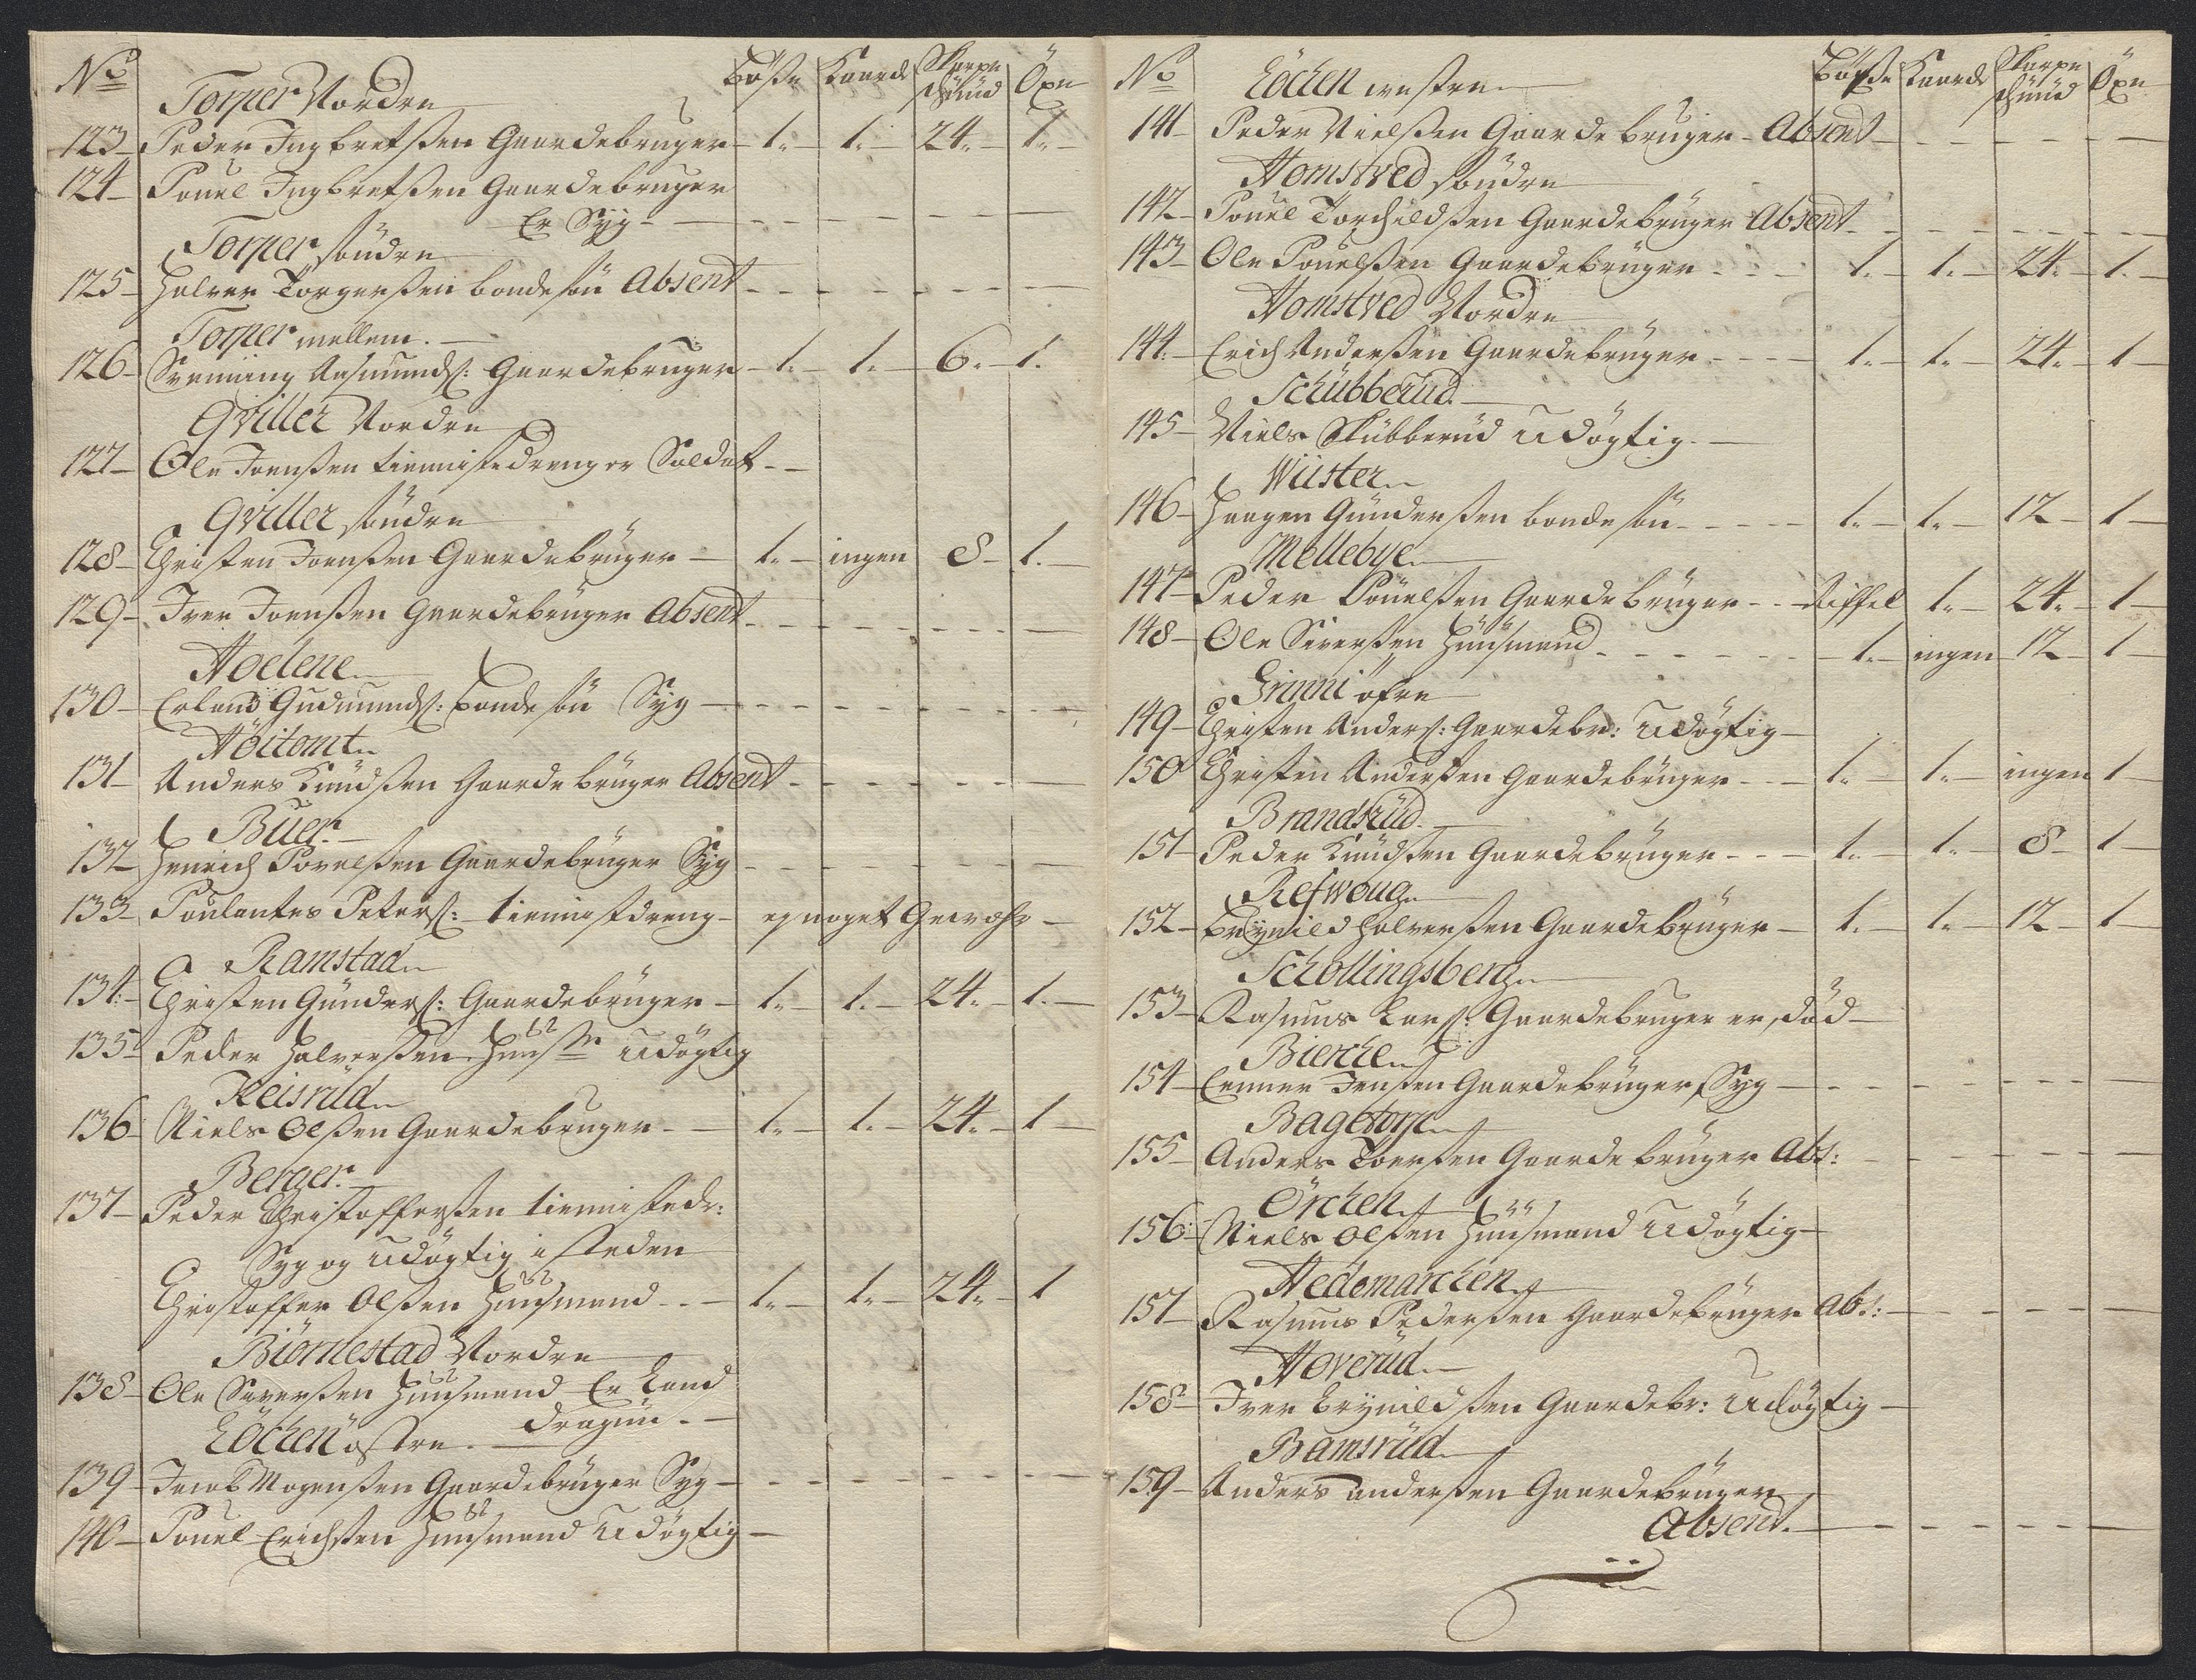 No Bösse Kaarde Skarpe schiud Öxe
Torper Nordre
123 Peder Ingbretsßen Gaardebruger 1. 1. 24. 1.
124 Pouel Ingbretsßen Gaardebruger
Er Syg
Torper söndre
125 Halver Torgerßen bondesön Absent
Torper mellem
126 Svening Aasmunds: Gaardebruger 1. 1. 6. 1.
Gviller Nordre
127 Ole Joenßen tiennistedreng er Soldat
Gviller söndre
128 Christen Joenßen Gaardebrüger 1. ingen 8 1.
129 Iver Joenßen Gaardebrüger Absent
Hoelene
130 Erland Gudmunds: bondesön Syg
Höitomt
131 Anders Knudsßen Gaardebrüger Absent
Buer
132 Henrich Povelßen Gaardebrüger Syg
133 Poulantes Peters: tiennistdreng ey noget Gewæhr
Ramstad
134 Christen Günders: Gaardebrüger 1. 1. 24. 1.
135 Peder Halverßen Huusm Udögtig
Heisrüd
136 Niels Olßen Gaardebruger 1. 1. 24. 1
Berger
137 Peder Christofferßen tiennistedr:
Syg og udögtig i steden
Christoffer Olßen Huusmand 1. 1. 24. 1
Biörnestad Nordre
138 Ole Siverßen Huusmand Er Land
dragun
Löchen östre
139 Jacob Mogenßen Gaardebrüger Syg
140 Pouel Erichßen Huusmand Udögtig
No Bösse Kaarde Skarpe schiud Öxe
Löchen westre
141 Peder Nielsßen Gaardebruger Absent
Homstved söndre
142 Pouel Torchildsßen Gaardebrüger Absent
143 Ole Pouelßen Gaardebrüger 1. 1. 24. 1.
Homstved Nordre
144 Erich Anderßen Gaardebrüger 1. 1. 24. 1
Schübberud
145 Niels Skübberüd Udögtig
Wiister
146 Haagen Günderßen bondesön 1. 1. 12 1
Mellebye
147 Peder Pouelßen Gaardebrüger Riffel 1. 24. 1
148 Ole Siverßen Huusmand 1. ingen 12 1
Grinni öfre
149 Christen Anders: Gaardebr: Udögtig
150 Christen Anderßen Gaardebrüger 1. 1. ingen 1
Brandsrüd
151 Peder Knudsßen Gaardebrüger 1. 1. 8 1
Refwoug
152 Brÿnild Halverßen Gaardebrüger 1. 1. 12 1
Schollingsberg
153 Rasmus Lars: Gaardebruger er död
Bierche
154 Enner Jenßen Gaardebrüger Syg
Bagetorp
155 Anders Toerßen Gaardebrüger Abs:
Örchen
156 Niels Olßen Huusmand Udögtig
Hedemarchen
157 Rasmus Pederßen Gaardebrüger Abs:
Hoverud
158 Iver Brynildsßen Gaardebr: Udögtig
Bamsrüd
159 Anders Anderßen Gaardebrüger
Absent